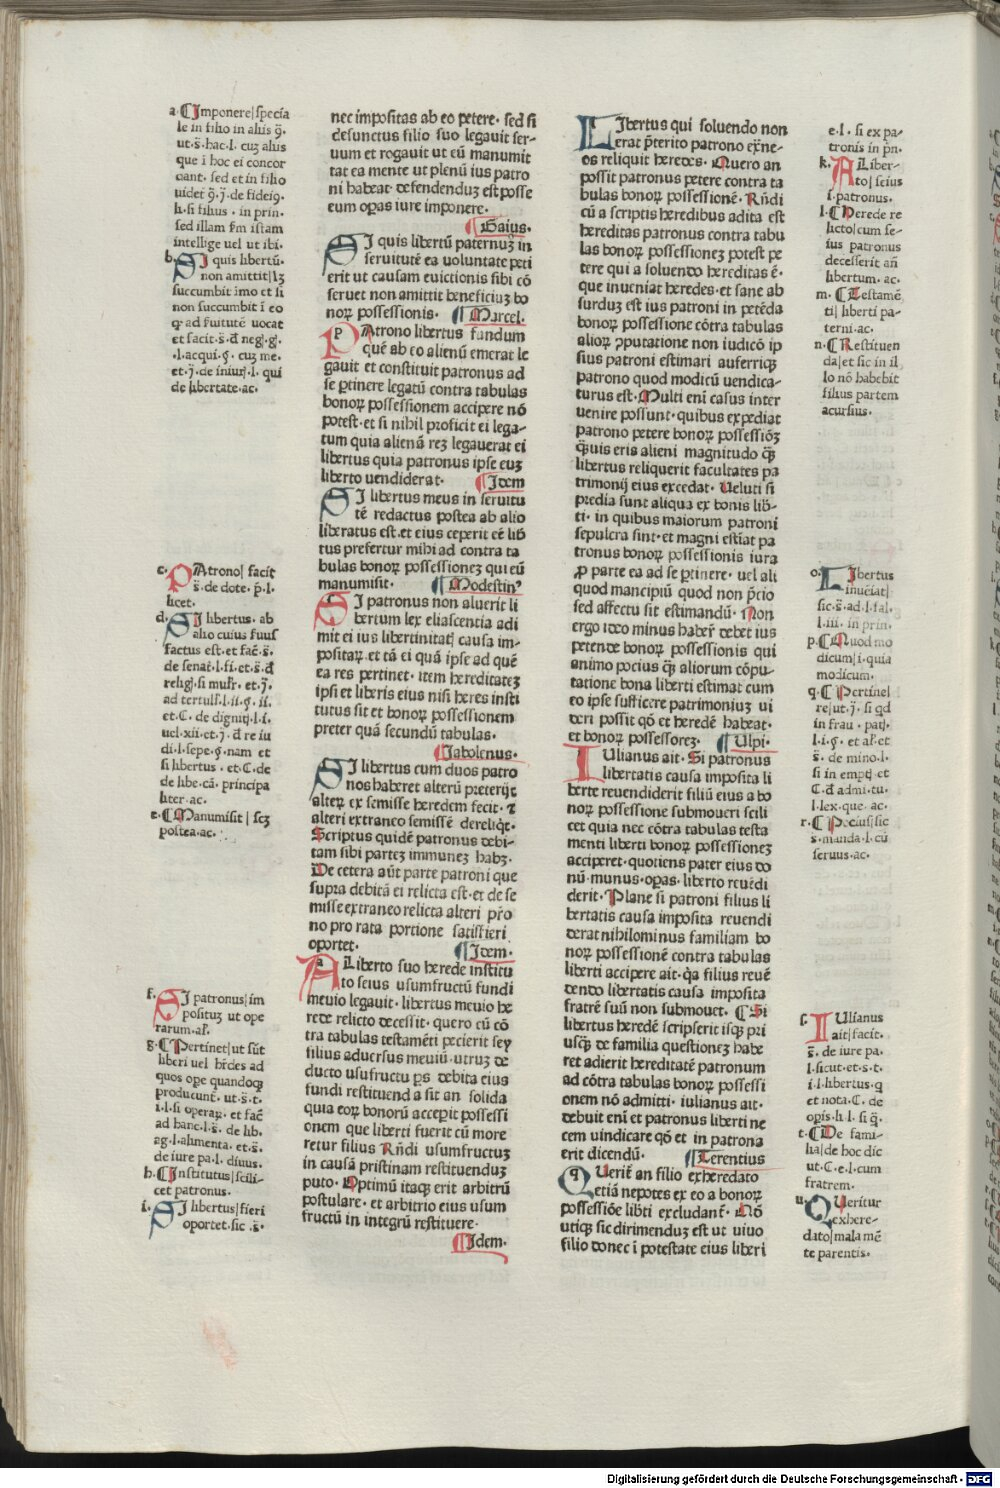 a. Imponere| specia
le in filio in aliis q̄.
ut.s̄.hac.l. cuꝫ alius
que ī hoc ei concor
dant. sed et in filio
uidet q̄.j̄. de fideiꝯ.
h.si filius. in prin.
sed illam s̄m istam
intellige uel ut ibi.
b. SI quis libertū.
non amittit| lꝫ
succumbit īmo et si
non succumbit ī eo
ꝙ ad s̄uitutē uocat
et facit.s̄.đ neg.g.
.l.acqui.§. cuꝫ me.
et.j̄.de iniur̄.l. qui
de libertate.ac.
c. PAtrono| facit
s̄.de dote.p̄.l.
licet.
d. SI libertus. ab
alio cuius suus
factus est.et fac̄.s̄.
de senat.l.fi.et.s̄.đ
religi.si mulr̄. et.j̄.
ad tertull.l.ii.§. ii.
et.C. de dignit.l.i.
uel.xii.et.j̄.đ re iu
di.l.sepe.§.nam et
si libertus. et.C.de
de hbe.cā. principa
liter.ac.
e. Manumisit| scꝫ
postea.ac.
f. SI patronus| im
positus ut ope
rarum.al̄.
g. Pertinet| ut sūt
liberi uel hr̄des ad
quos ope quandoqꝫ
producunt̄. ut.s̄.t.
i.l.si operaꝝ. et fac̄
ad hanc.l.s̄. de lib.
ag.l.alimenta. et.s̄.
de iure pa.l. diuus.
h. Institutus| scili
cet patronus.
i. SI libertus| fieri
oportet.sic.s̄.
nec impositas ab eo petere. sed si
defunctus filio suo legauit ser-
uum et rogauit ut eū manumit
tat ea mente ut plenū ius patro
ni habeat defendenduꝫ est posse
eum oꝑas iure imponere.
Gaius.
SI quis libertū paternuꝫ in
seruitutē ea uoluntate peti
erit ut causam euictionis sibi cō
seruet non amittit beneficiuꝫ bo
noꝝ possessionis. Marcel.
PAtrono libertus fundum
quē ab eo alienū emerat le
gauit et constituit patronus ad
se ꝑtinere legatū contra tabulas
bonoꝝ possessionem accipere nō
potest.et si nihil proficit ei lega-
tum quia alienā reꝫ legauerat ei
libertus quia patronus ipse euꝫ
liberto uendiderat. Idem
SI libertus meus in seruitu
tē redactus postea ab alio
liberatus est.et eius ceperit eē lib̄
tus prefertur mihi ad contra ta
bulas bonoꝝ possessioneꝫ qui eū
manumisit. Modestin⁹
SI patronus non aluerit li
bertum lex eliascentia adi
mit ei ius libertinitati causa im-
positaꝝ.et tā ei quā ipse ad quē
ea res pertinet. item hereditateꝫ
ipsi et liberis eius nisi heres insti
tutus sit et bonoꝝ possessionem
preter quā secundū tabulas.
Iabolenus.
SI libertus cum duos patro
nos haberet alterū preterijt
alteꝝ ex semisse heredem fecit. ⁊
alteri extraneo semissē dereliq̄t.
Scriptus quidē patronus debi-
tam sibi parteꝫ immuneꝫ habꝫ.
De cetera aūt parte patroni que
supra debitā ei relicta est.et de se
misse extraneo relicta alteri pr̄o
no pro rata portione satisfieri
oportet. Idem.
ALiberto suo herede institu
to seius usumfructū fundi
meuio legauit. libertus meuio he
rede relicto decessit. quero cū cō
tra tabulas testamēti pecierit seꝫ
filius aduersus meuiū.utruꝫ de
ducto usufructu ꝑs debita eius
fundi restituend a sit an solida
quia eoꝝ bonorū accepit possessi
onem que liberti fuerit cū more
retur filius Rn̄di usumfructuꝫ
in causā pristinam restituenduꝫ
puto. Optimū itaqꝫ erit arbitrū
postulare. et arbitrio eius usum
fructū in integrū restituere.
Idem.
LIbertus qui soluendo non
erat p̄terito patrono ex̄ne-
os reliquit heredes. Quero an
possit patronus petere contra ta
bulas bonoꝝ possessionē. Rn̄di
cū a scriptis heredibus adita est
hereditas patronus contra tabu
las bonoꝝ possessioneꝫ potest pe
tere qui a soluendo hereditas ē.
que inueniat heredes.et sane ab
surduꝫ est ius patroni in petēda
bonoꝝ possessione cōtra tabulas
alioꝝ ꝯputatione non iudicō ip
sius patroni estimari auferriqꝫ
patrono quod modicū uendica-
turus est. Multi eni casus inter
uenire possunt.quibus expediat
patrono petere bonoꝝ possessiōꝫ
q̄uis eris alieni magnitudo q̄ꝫ
libertus reliquerit facultates pa
trimonij eius excedat. Ueluti si
predia sunt aliqua ex bonis lib̄-
ti. in quibus maiorum patroni
sepulcra sint.et magni estīat pa
tronus bonoꝝ possessionis iura
ꝓ parte ea ad se ꝑtinere. uel ali
quod mancipiū quod non p̄cio
sed affectu sit estimandū. Non
ergo ideo minus haber̄ debet ius
petende bonoꝝ possessionis qui
animo pocius q̄ꝫ aliorum cōpu-
tatione bona liberti estimat cum
eo ipse sufficere patrimoniuꝫ ui
deri possit qđ et heredē habeat.
et bonoꝝ possessoreꝫ. Ulpi.
IUlianus ait. Si patronus
libertatis causa imposita li
berte reuendiderit filiū eius a bo
noꝝ possessione submoueri scili
cet quia nec cōtra tabulas testa
menti liberti bonoꝝ possessioneꝫ
acciperet.quotiens pater eius do
nū.munus.oꝑas.liberto reuēdi
derit. Plane si patroni filius li
bertatis causa imposita reuendi
derat nihilominus familiam bo
noꝝ possessionē contra tabulas
liberti accipere ait.q̄a filius reuē
dendo libertatis causa imposita
fratrē suū non submouet. Si
libertus heredē scripserit isqꝫ pri
usqꝫ de familia questioneꝫ habe
ret adierit hereditatē patronum
ad cōtra tabulas bonoꝝ possessi
onem nō admitti. iulianus ait.
debuit eni et patronus liberti ne
cem uindicare qđ et in patrona
erit dicendū. Terentius
QUerit̄ an filio exheredato
etiā nepotes ex eo a bonoꝝ
possessiōe lib̄ti excludant̄. Nō
utiqꝫ sic dirimenduꝫ est ut uiuo
filio donec ī potestate eius liberi
e.l. si ex pa-
tronis in pn̄.
k. ALiber-
to| seius
s.patronus.
l. Herede re
licto| cum se-
ius patronus
decesserit an̄
libertum.ac.
m. Testamē
ti| liberti pa-
terni.ac.
n. Restituen
da| et sic in il
lo nō habebit
filius partem
acursius.
o. LIbertus
inueniat|
sic.s̄.ad.l.fal.
l.iii. in prin.
p. Quod mo
dicum| i.quia
modicum.
q. Pertinel
re| ut.j̄. si qd
in frau. pat.
l.i.§. et al̄.et
s̄. de mino.l.
si in empt.et
C.đ admi.tu.
l.lex.que.ac.
r. Pocius| sic
s̄.manda.l.cū
seruus.ac.
s. IUlianus
ait| facit.
s̄. de iure pa.
l.sicut.et.s.t.
i.l.libertus.q
et nota.C. de
oꝑis.li.l.si q̄.
t. De fami-
lia| de hoc dic
ut.C.e.l.cum
fratrem.
u. QUeritur
exhere-
dato| mala mē
te parentis.
Digitalisierung gefördert durch die Deutsche Forschungsgemeinschaft - DFG